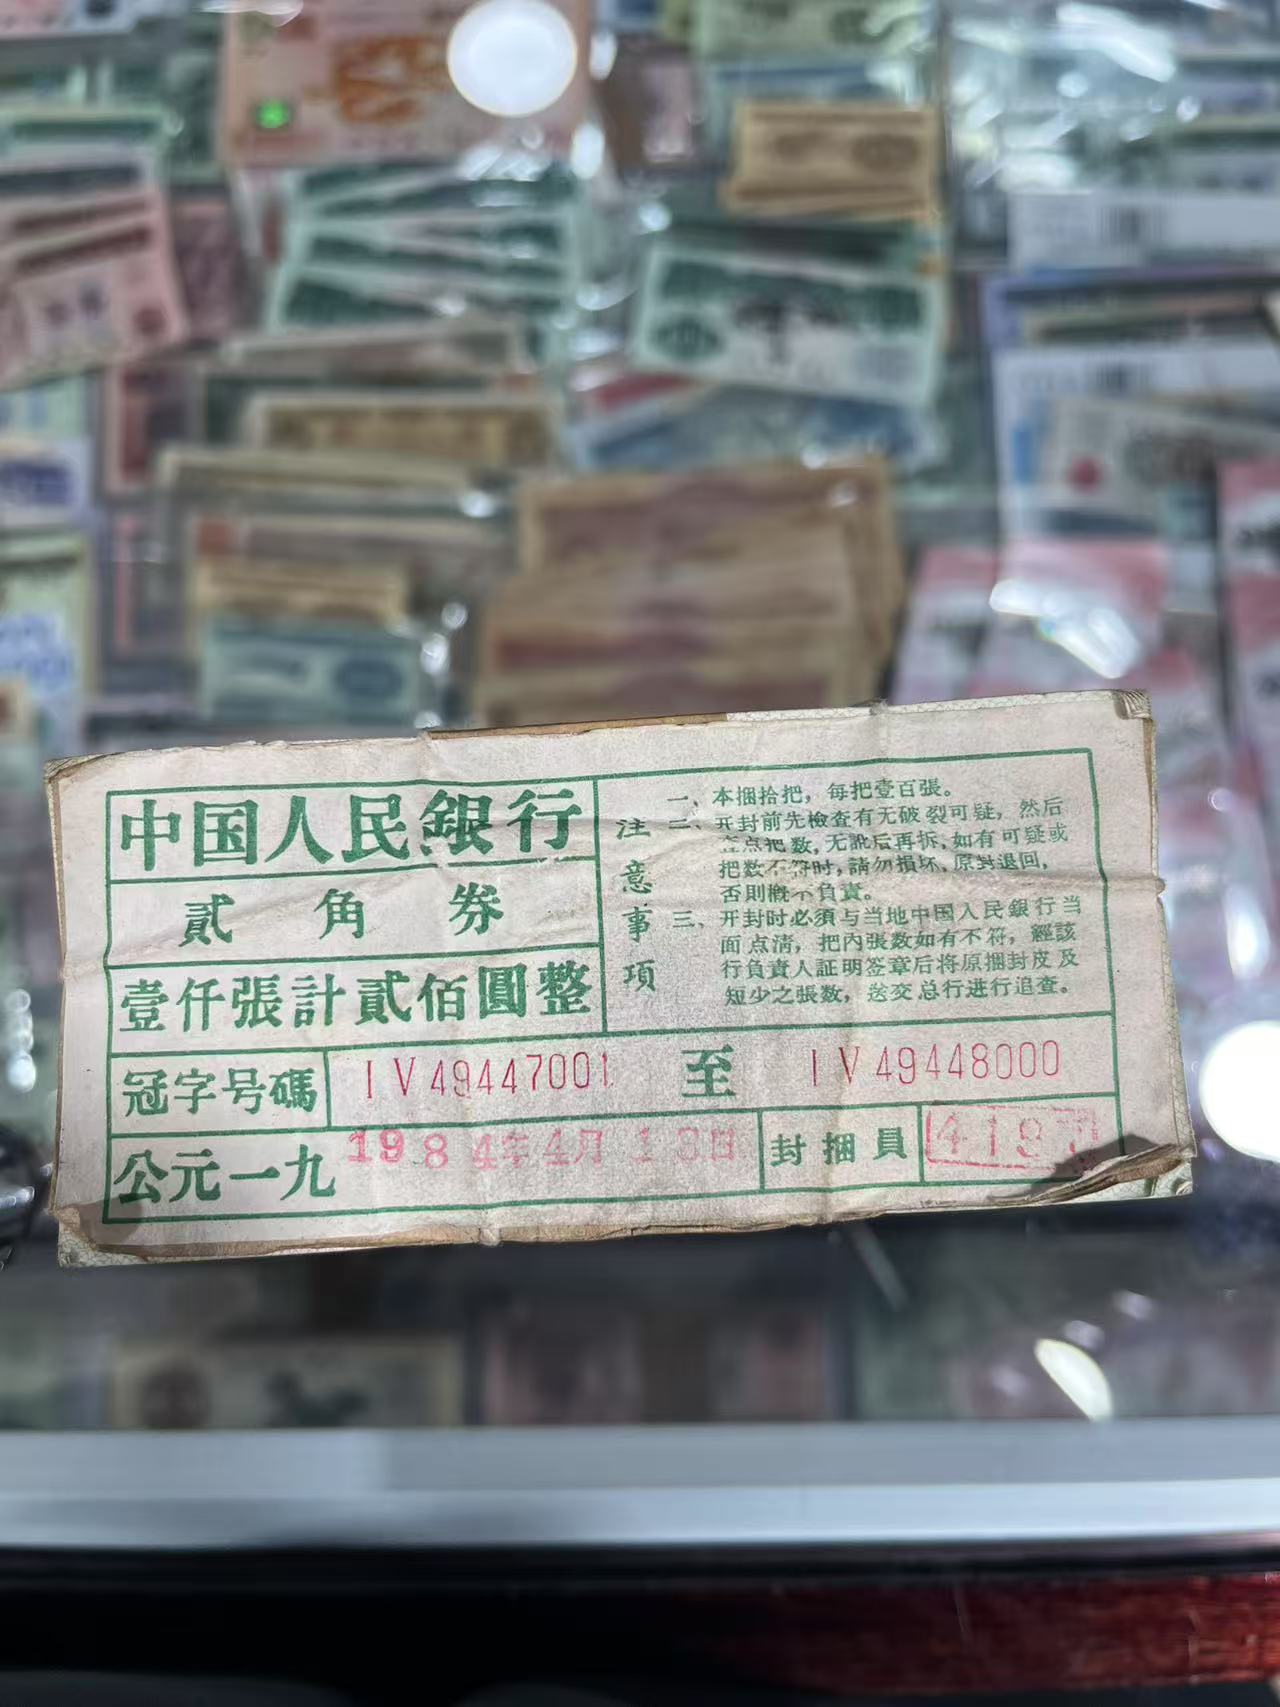 中国人民銀行
貳角券
壹仟張計貳佰圓整
注意事項
一、本捆拾把，每把壹百張。
二、开封前先檢查有无破裂可疑，然后
点把数，无訛后再拆，如有可疑或
把数不符时，請勿損坏，原封退回，
否則概不負責。
三、开封时必須与当地中国人民銀行当
面点清，把內張数如有不符，經該
行負責人証明签章后将原捆封皮及
短少之張数，送交总行进行追查。
冠字号碼 IV49447001 至 IV49448000
公元一九 1984年4月13日 封捆員